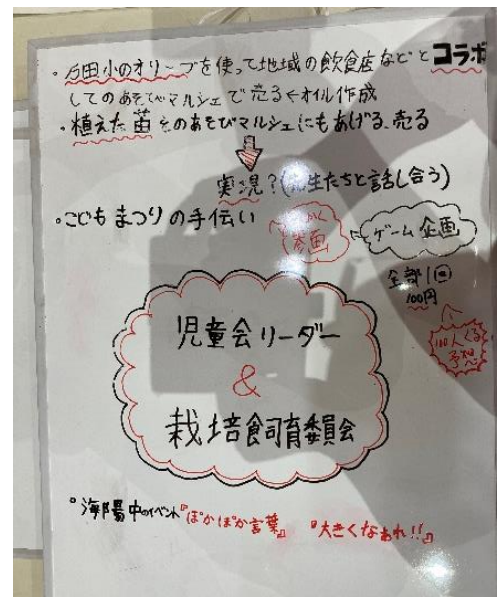 ・万田小のオリーブを使って地域の飲食店などとコラボ
してのあそびマルシェで売る←オイル作成
・植えた苗をのあそびマルシェにもあげる、売る
実現?(先生たちと話し合う)
・こどもまつりの手伝い
参画
ゲーム企画
全部1回
100円
100人くる
予想
児童会リーダー
&
栽培飼育委員会
・海陽中のイベント『ぽかぽか言葉』 『大きくなあれ!!』